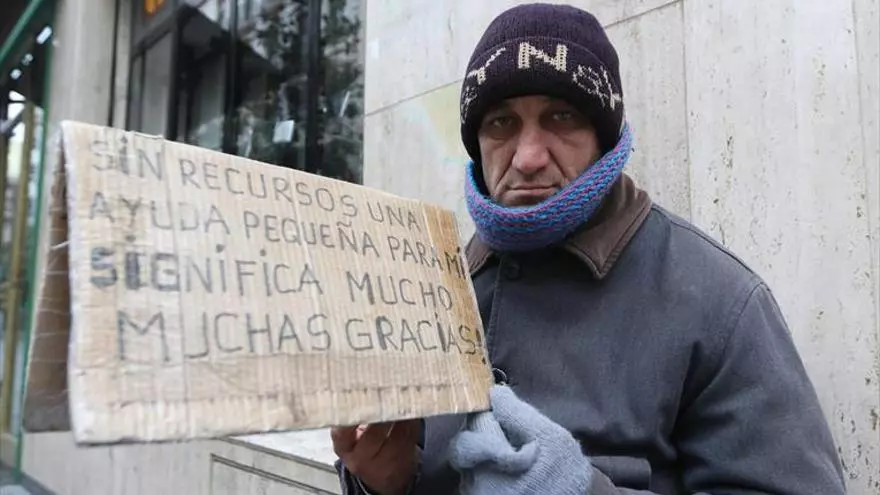 SIN RECURSOS UNA
AYUDA PEQUEÑA PARA MI
SIGNIFICA MUCHO
MUCHAS GRACIAS!